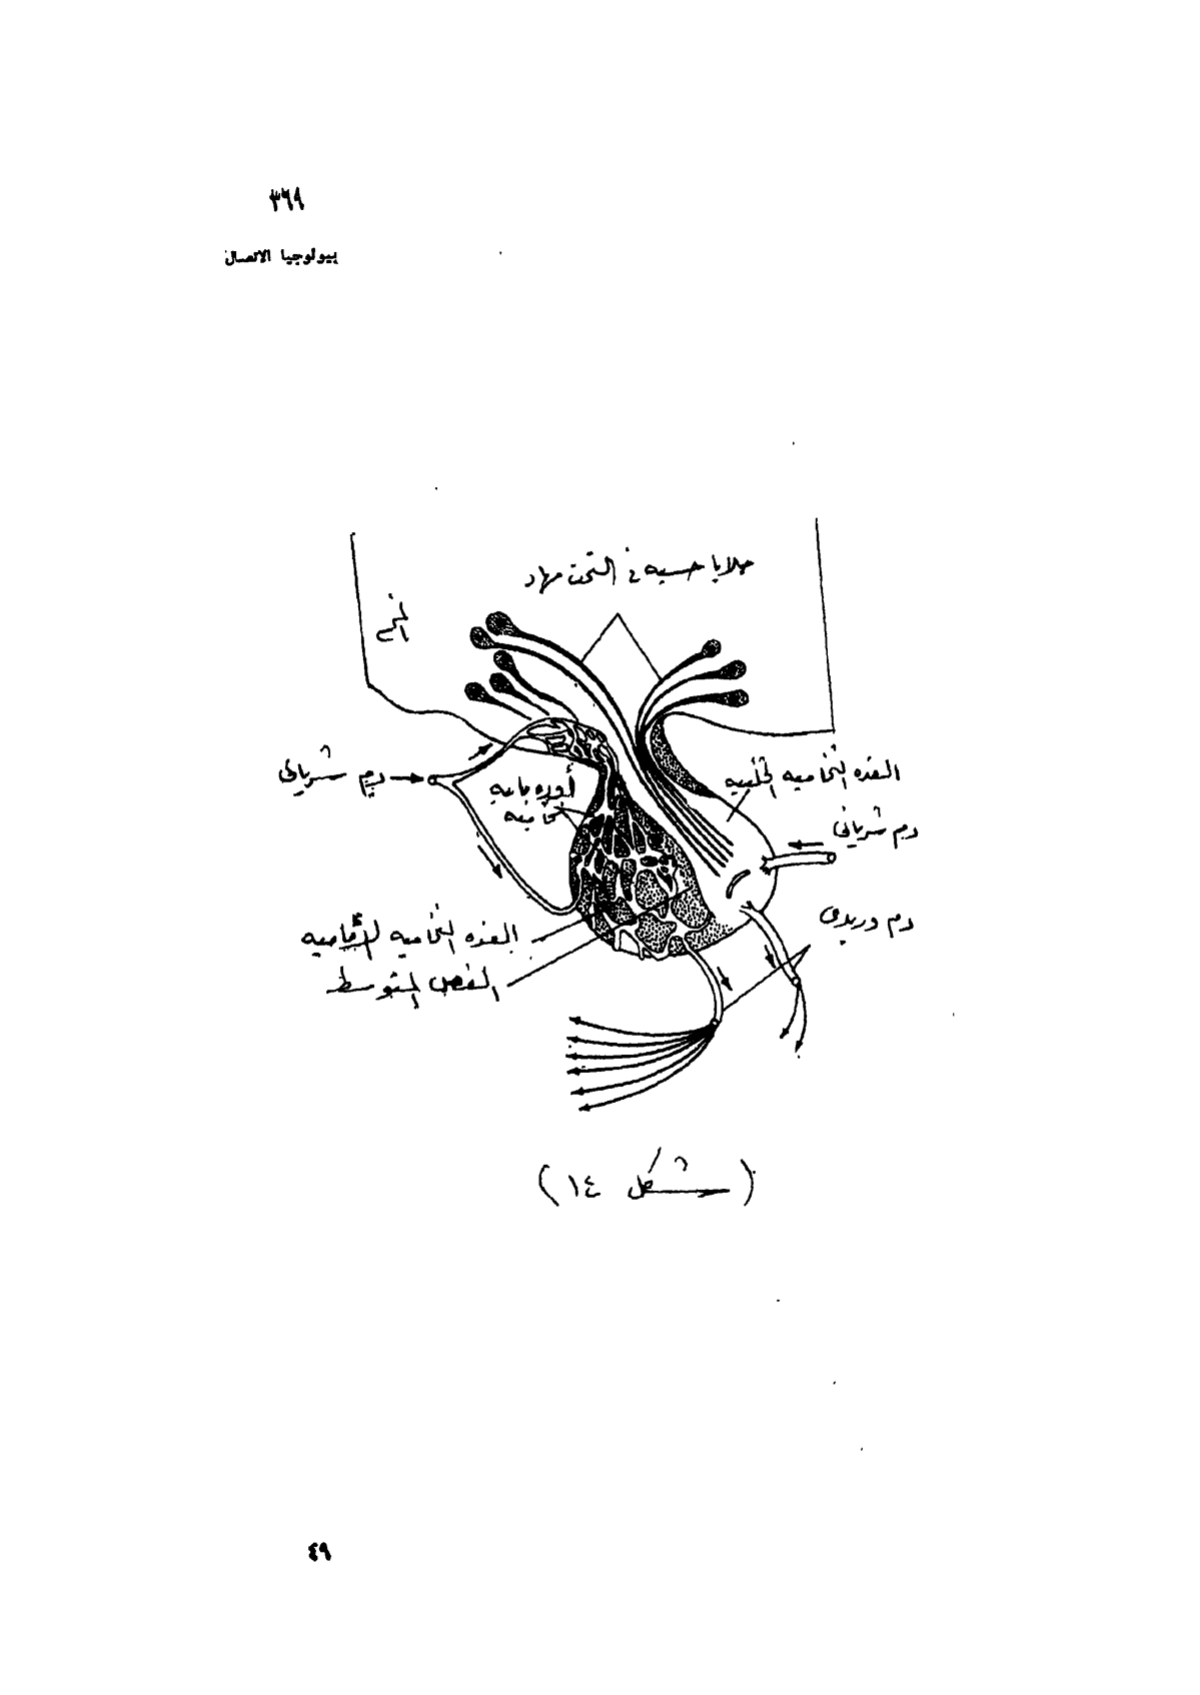 ٣٦٩
بيولوجيا الاتصال
خلايا حسيه في التحت مهاد
المخ
دم شرياني
الغده النخاميه الخلفيه
أورده بابيه
نخاميه
دم شرياني
دم وريدى
الغده النخاميه الأماميه
الفص المتوسط
(شكل ١٤)
٤٩